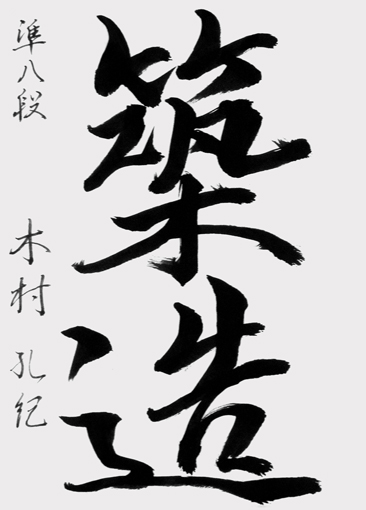 築造
準八段
木村 孔紀